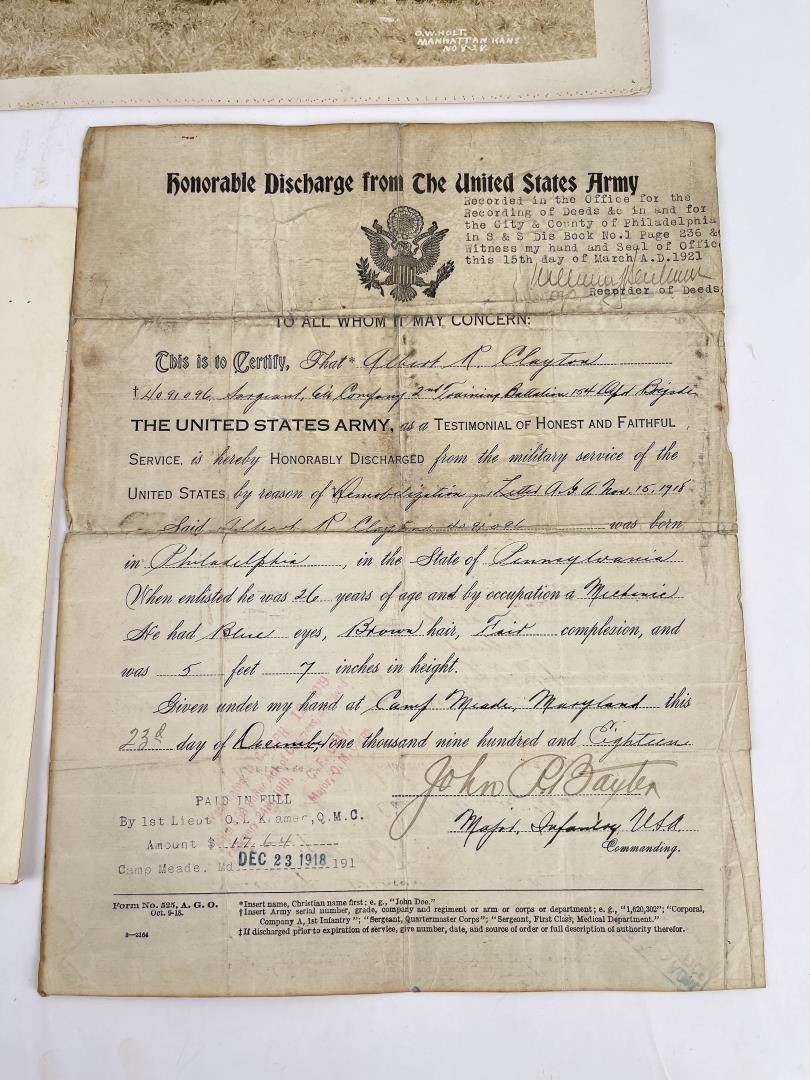 O.W. HOLT.
MANHATTAN KANS
NO 8-28
Honorable Discharge from The United States Army
Recorded in the Office for the
Recording of Deeds &c in and for
the City & County of Philadelphia
in S & S Dis Book No.1 Page 236 &c
Witness my hand and Seal of Office
this 15th day of March A.D.1921
Recorder of Deeds
TO ALL WHOM IT MAY CONCERN:
This is to Certify, That* Albert R. Clayton
† 4091096 Sargeant, 6th Company 2nd Training Battalion 154 Dept Brigade
THE UNITED STATES ARMY, as a TESTIMONIAL OF HONEST AND FAITHFUL
SERVICE, is hereby HONORABLY DISCHARGED from the military service of the
UNITED STATES by reason of Demobilization Letter A.G.A Nov. 15, 1918
Said Albert R Clayton 4091096 was born
in Philadelphia, in the State of Pennsylvania
When enlisted he was 26 years of age and by occupation a
He had Blue eyes, Brown hair, Fair complexion, and
was 5 feet 7 inches in height.
Given under my hand at Camp Meade, Maryland this
23d day of December one thousand nine hundred and Eighteen
PAID IN FULL
By 1st Lieut O.L Kramer, Q.M.C.
Amount $ 17.64
Camp Meade. Md DEC 23 1918 191
John R Baxter
Major, Infantry USA
Commanding.
Form No. 525, A. G. O.
Oct. 9-18.
3—3164
*Insert name, Christian name first; e. g., "John Doe."
†Insert Army serial number, grade, company and regiment or arm or corps or department; e. g., "1,620,302"; "Corporal,
Company A, 1st Infantry"; "Sergeant, Quartermaster Corps"; "Sergeant, First Class, Medical Department."
‡If discharged prior to expiration of service, give number, date, and source of order or full description of authority therefor.